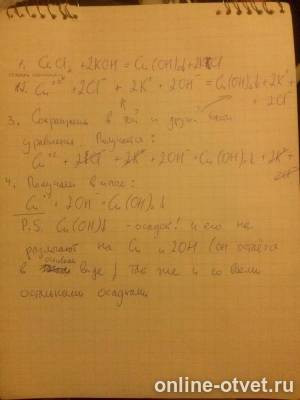 1. CuCl₂ + 2KOH = Cu(OH)₂↓ + 2KCl
2. Cu⁺² + 2Cl⁻ + 2K⁺ + 2OH⁻ = Cu(OH)₂↓ + 2K⁺ +
+ 2Cl⁻
3. Сокращаем в той и другой части
уравнения. Получается:
Cu⁺² + 2Cl⁻ + 2K⁺ + 2OH⁻ = Cu(OH)₂↓ + 2K⁺ +
2Cl⁻
4. Получаем в итоге:
Cu⁺² + 2OH⁻ = Cu(OH)₂↓
P.S. Cu(OH)↓ - осадок! и его не
разлагают на Cu и 2OH (он остаётся
в виде) так же и со всеми
остальными осадками
online-otvet.ru